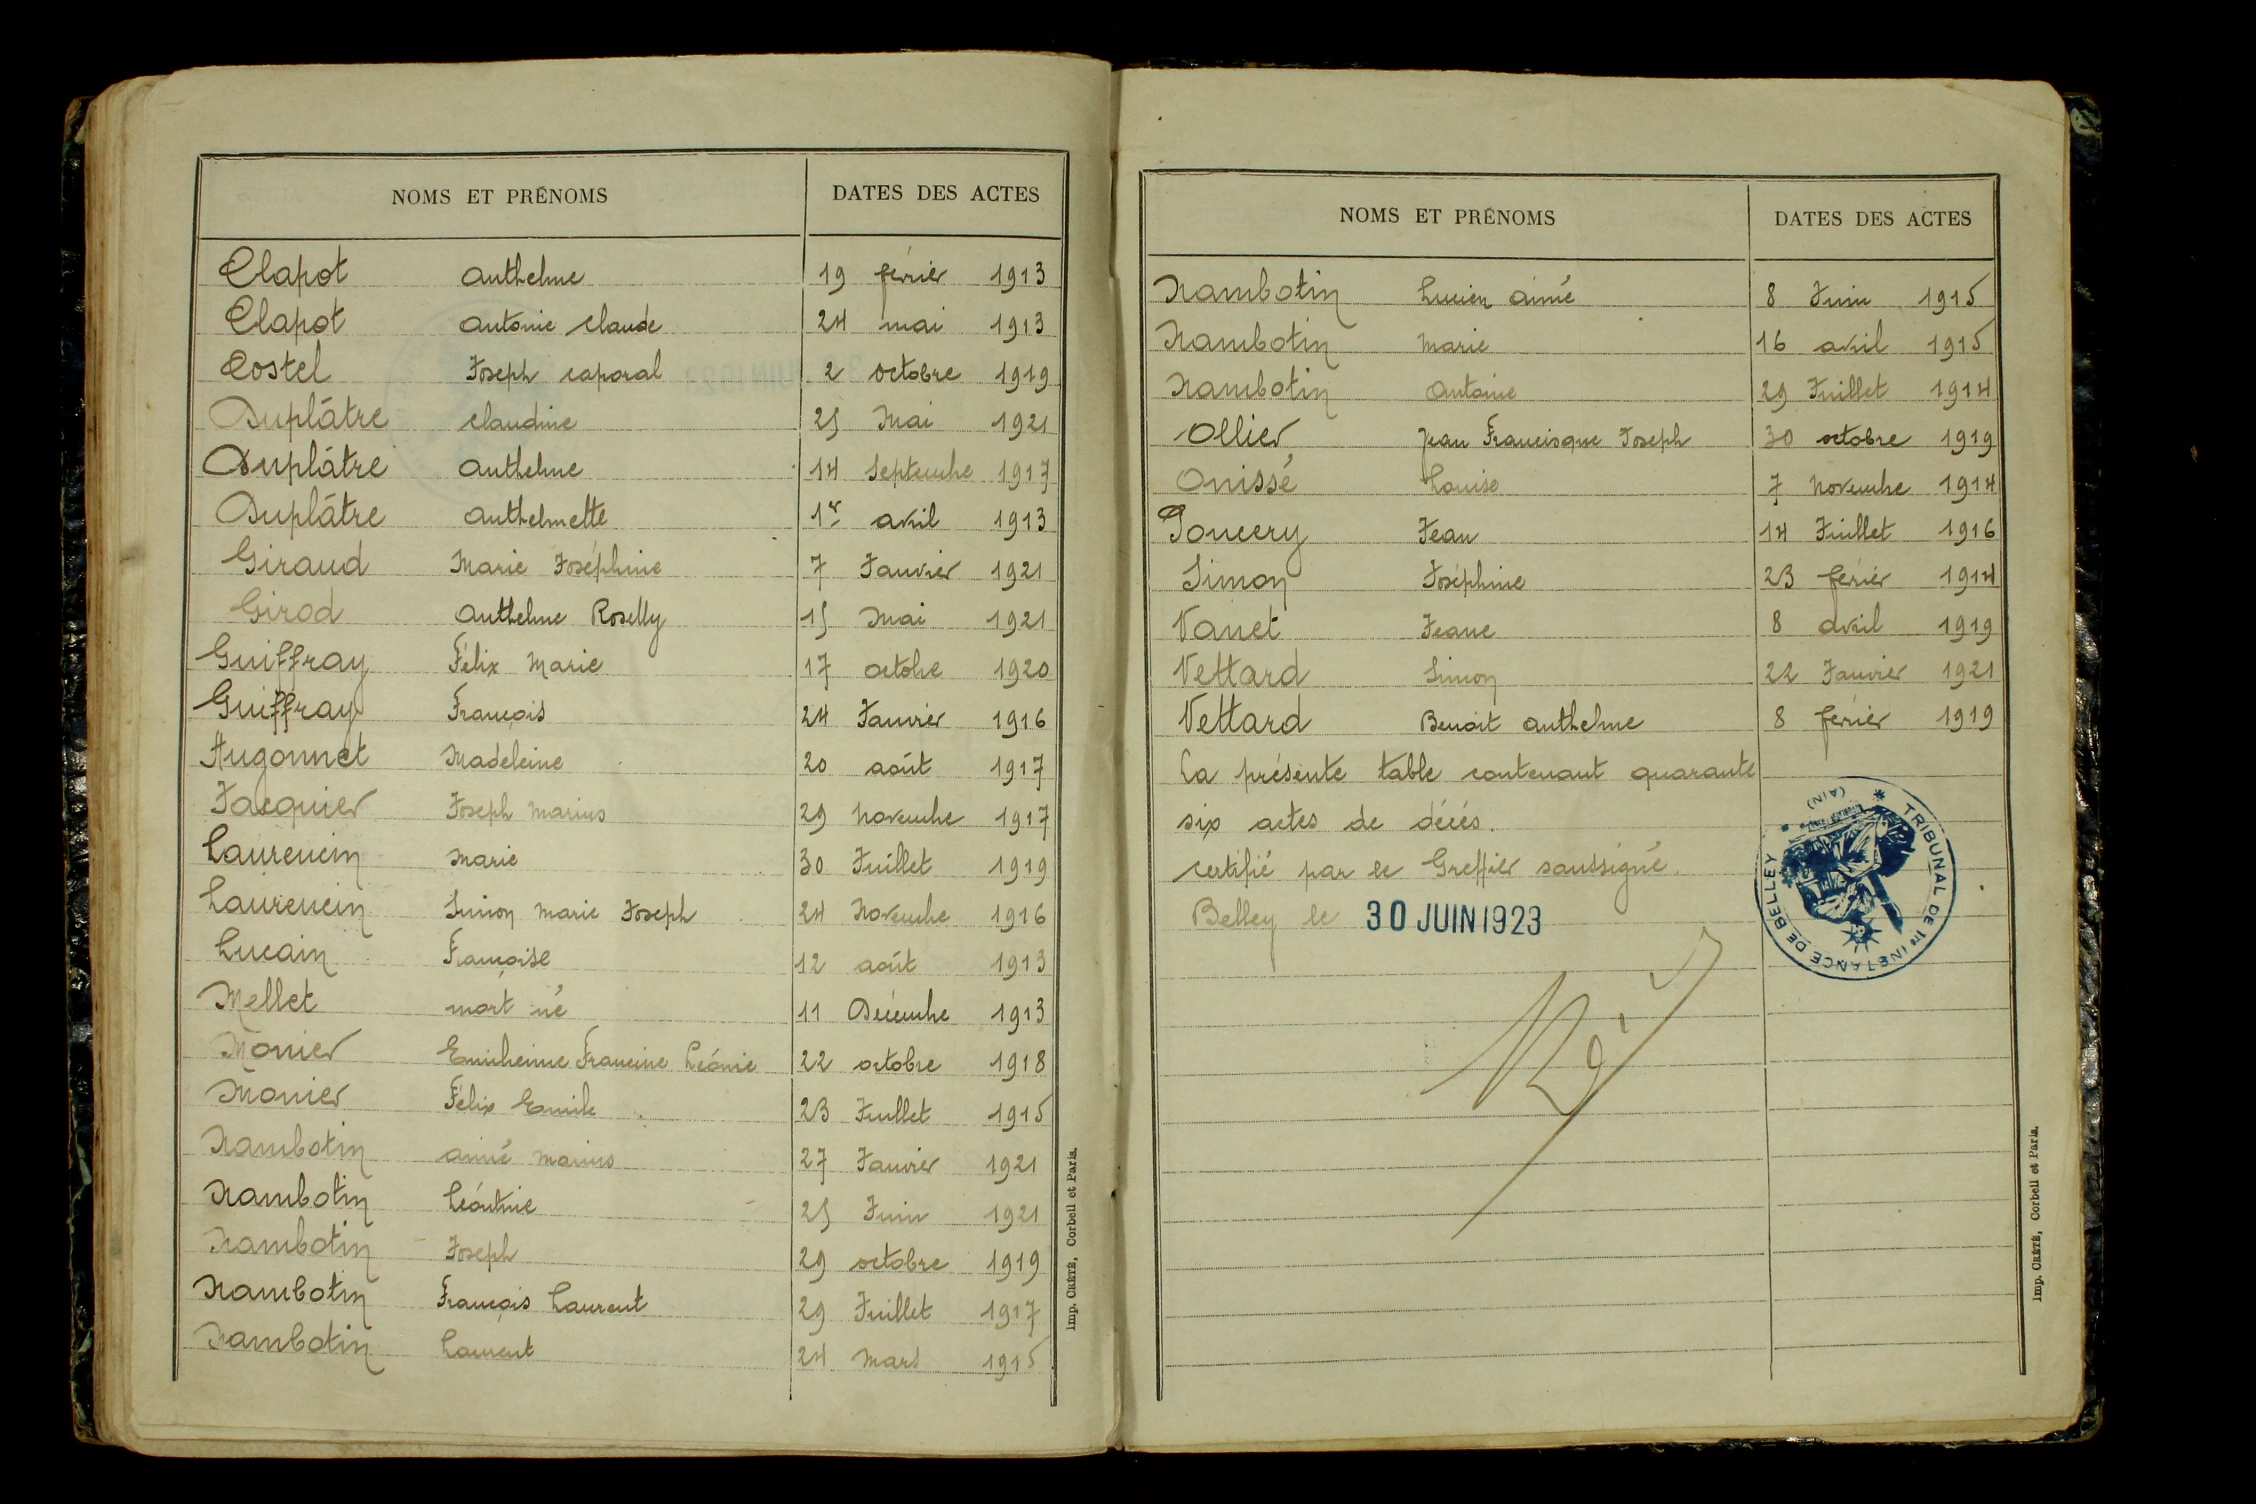 NOMS ET PRÉNOMS DATES DES ACTES
Clapot Anthelme 19 février 1913
Clapot Antonie Claude 24 mai 1913
Costel Joseph caporal 2 octobre 1919
Duplâtre Claudine 25 Mai 1921
Duplâtre Anthelme 14 Septembre 1917
Duplâtre Anthelmette 1er avril 1913
Giraud Marie Joséphine 7 Janvier 1921
Girod Anthelme Roselly 15 Mai 1921
Guiffray Félix Marie 17 octobre 1920
Guiffray François 24 Janvier 1916
Hugonnet Madeleine 20 août 1917
Jacquier Joseph Marius 29 Novembre 1917
Laurencin Marie 30 Juillet 1919
Laurencin Simon Marie Joseph 24 Novembre 1916
Lucain Françoise 12 août 1913
Mellet mort né 11 Décembre 1913
Monier Francine Léonie 22 octobre 1918
Monier Félix Emile 23 Juillet 1915
Nambotin aimé Marius 27 Janvier 1921
Nambotin Léontine 25 Juin 1921
Nambotin Joseph 29 octobre 1919
Nambotin François Laurent 29 Juillet 1917
Nambotin Laurent 24 Mars 1915
Imp. CRÉTÉ, Corbeil et Paris.
NOMS ET PRÉNOMS DATES DES ACTES
Nambotin Lucien aimé 8 Juin 1915
Nambotin Marie 16 avril 1915
Nambotin Antoine 29 Juillet 1914
Ollier Jean Francisque Joseph 30 octobre 1919
Onissé Louise 7 Novembre 1914
Poncery Jean 14 Juillet 1916
Simon Joséphine 23 février 1914
Vanet Jeane 8 avril 1919
Vettard Simon 22 Janvier 1921
Vettard Benoit Anthelme 8 février 1919
La présente table contenant quarante
six actes de décés.
certifié par le Greffier soussigné.
Belley le 30 JUIN 1923
TRIBUNAL DE 1re INSTANCE DE BELLEY
(AIN)
Imp. CRÉTÉ, Corbeil et Paris.